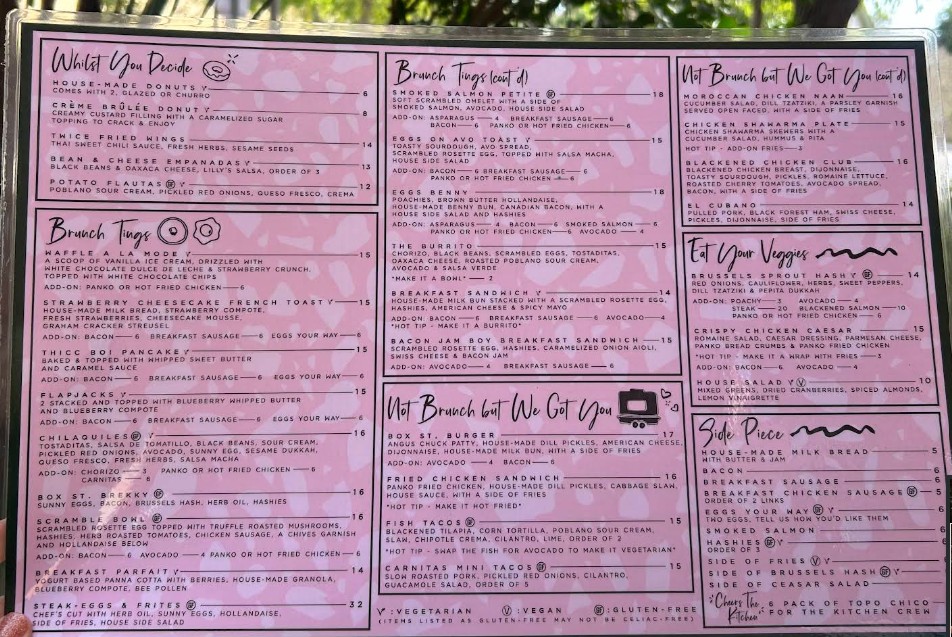 Whilst You Decide
HOUSE-MADE DONUTS V 6
COMES WITH 2, GLAZED OR CHURRO
CRÈME BRÛLÉE DONUT V 8
CREAMY CUSTARD FILLING WITH A CARAMELIZED SUGAR
TOPPING TO CRACK & ENJOY
TWICE FRIED WINGS 14
THAI SWEET CHILI SAUCE, FRESH HERBS, SESAME SEEDS
BEAN & CHEESE EMPANADAS V 13
BLACK BEANS & OAXACA CHEESE, LILLY'S SALSA, ORDER OF 3
POTATO FLAUTAS GF V 12
POBLANO SOUR CREAM, PICKLED RED ONIONS, QUESO FRESCO, CREMA
Brunch Tings
WAFFLE A LA MODE V 15
A SCOOP OF VANILLA ICE CREAM, DRIZZLED WITH
WHITE CHOCOLATE DULCE DE LECHE & STRAWBERRY CRUNCH,
TOPPED WITH WHITE CHOCOLATE CHIPS
ADD-ON: PANKO OR HOT FRIED CHICKEN — 6
STRAWBERRY CHEESECAKE FRENCH TOAST V 15
HOUSE-MADE MILK BREAD, STRAWBERRY COMPOTE,
FRESH STRAWBERRIES, CHEESECAKE MOUSSE,
GRAHAM CRACKER STREUSEL
ADD-ON: BACON — 6 BREAKFAST SAUSAGE — 6 EGGS YOUR WAY — 6
THICC BOI PANCAKE V 15
BAKED & TOPPED WITH WHIPPED SWEET BUTTER
AND CARAMEL SAUCE
ADD-ON: BACON — 6 BREAKFAST SAUSAGE — 6 EGGS YOUR WAY — 6
FLAPJACKS V 15
2 STACKED AND TOPPED WITH BLUEBERRY WHIPPED BUTTER
AND BLUEBERRY COMPOTE
ADD-ON: BACON — 6 BREAKFAST SAUSAGE — 6 EGGS YOUR WAY — 6
CHILAQUILES GF V 16
TOSTADITAS, SALSA DE TOMATILLO, BLACK BEANS, SOUR CREAM,
PICKLED RED ONIONS, AVOCADO, SUNNY EGG, SESAME DUKKAH,
QUESO FRESCO, FRESH HERBS, SALSA MACHA
ADD-ON: CHORIZO — 3 PANKO OR HOT FRIED CHICKEN — 6
CARNITAS — 6
BOX ST. BREKKY GF 16
SUNNY EGGS, BACON, BRUSSELS HASH, HERB OIL, HASHIES
SCRAMBLE BOWL GF V 16
SCRAMBLED ROSETTE EGG TOPPED WITH TRUFFLE ROASTED MUSHROOMS,
HASHIES, HERB ROASTED TOMATOES, CHICKEN SAUSAGE, A CHIVES GARNISH
AND HOLLANDAISE BELOW
ADD-ON: BACON — 6 AVOCADO — 4 PANKO OR HOT FRIED CHICKEN — 6
BREAKFAST PARFAIT V 14
YOGURT BASED PANNA COTTA WITH BERRIES, HOUSE-MADE GRANOLA,
BLUEBERRY COMPOTE, BEE POLLEN
STEAK-EGGS & FRITES GF 32
CHEF'S CUT WITH HERB OIL, SUNNY EGGS, HOLLANDAISE,
SIDE OF FRIES, HOUSE SIDE SALAD
Brunch Tings (cont'd)
SMOKED SALMON PETITE GF 18
SOFT SCRAMBLED OMELET WITH A SIDE OF
SMOKED SALMON, AVOCADO, HOUSE SIDE SALAD
ADD-ON: ASPARAGUS — 4 BREAKFAST SAUSAGE — 6
BACON — 6 PANKO OR HOT FRIED CHICKEN — 6
EGGS ON AVO TOAST V 15
TOASTY SOURDOUGH, AVO SPREAD,
SCRAMBLED ROSETTE EGG, TOPPED WITH SALSA MACHA,
HOUSE SIDE SALAD
ADD-ON: BACON — 6 BREAKFAST SAUSAGE — 6
PANKO OR HOT FRIED CHICKEN — 6
EGGS BENNY 18
POACHIES, BROWN BUTTER HOLLANDAISE,
HOUSE-MADE BENNY BUN, CANADIAN BACON, WITH A
HOUSE SIDE SALAD AND HASHIES
ADD-ON: ASPARAGUS — 4 BACON — 6 SMOKED SALMON — 6
PANKO OR HOT FRIED CHICKEN — 6 AVOCADO — 4
THE BURRITO 15
CHORIZO, BLACK BEANS, SCRAMBLED EGGS, TOSTADITAS,
OAXACA CHEESE, ROASTED POBLANO SOUR CREAM,
AVOCADO & SALSA VERDE
*MAKE IT A BOWL* — 2
BREAKFAST SANDWICH V 14
HOUSE-MADE MILK BUN STACKED WITH A SCRAMBLED ROSETTE EGG,
HASHIES, AMERICAN CHEESE & SPICY MAYO
ADD-ON: BACON — 6 BREAKFAST SAUSAGE — 6 AVOCADO — 4
*HOT TIP - MAKE IT A BURRITO*
BACON JAM BOY BREAKFAST SANDWICH 15
SCRAMBLED ROSETTE EGG, HASHIES, CARAMELIZED ONION AIOLI,
SWISS CHEESE & BACON JAM
ADD-ON: AVOCADO — 4 BREAKFAST SAUSAGE — 6
Not Brunch but We Got You
BOX ST. BURGER 17
ANGUS CHUCK PATTY, HOUSE-MADE DILL PICKLES, AMERICAN CHEESE,
DIJONNAISE, HOUSE-MADE MILK BUN, WITH A SIDE OF FRIES
ADD-ON: AVOCADO — 4 BACON — 6
FRIED CHICKEN SANDWICH 16
PANKO FRIED CHICKEN, HOUSE-MADE DILL PICKLES, CABBAGE SLAW,
HOUSE SAUCE, WITH A SIDE OF FRIES
*HOT TIP - MAKE IT HOT FRIED*
FISH TACOS GF 15
BLACKENED TILAPIA, CORN TORTILLA, POBLANO SOUR CREAM,
SLAW, CHIPOTLE CREMA, CILANTRO, LIME, ORDER OF 2
*HOT TIP - SWAP THE FISH FOR AVOCADO TO MAKE IT VEGETARIAN*
CARNITAS MINI TACOS GF 15
SLOW ROASTED PORK, PICKLED RED ONIONS, CILANTRO,
GUACAMOLE SALSA, ORDER OF 5
V :VEGETARIAN V :VEGAN GF :GLUTEN-FREE
(ITEMS LISTED AS GLUTEN-FREE MAY NOT BE CELIAC-FREE)
Not Brunch but We Got You (cont'd)
MOROCCAN CHICKEN NAAN 16
CUCUMBER SALAD, DILL TZATZIKI, A PARSLEY GARNISH
SERVED OPEN FACED, WITH A SIDE OF FRIES
CHICKEN SHAWARMA PLATE 15
CHICKEN SHAWARMA SKEWERS WITH A
CUCUMBER SALAD, HUMMUS & PITA
HOT TIP - ADD-ON FRIES — 3
BLACKENED CHICKEN CLUB 16
BLACKENED CHICKEN BREAST, DIJONNAISE,
TOASTY SOURDOUGH, PICKLES, ROMAINE LETTUCE,
ROASTED CHERRY TOMATOES, AVOCADO SPREAD,
BACON, WITH A SIDE OF FRIES
EL CUBANO 14
PULLED PORK, BLACK FOREST HAM, SWISS CHEESE,
PICKLES, DIJONNAISE, SIDE OF FRIES
Eat Your Veggies
BRUSSELS SPROUT HASH V GF 14
RED ONIONS, CAULIFLOWER, HERBS, SWEET PEPPERS,
DILL TZATZIKI & PEPITA DUKKAH
ADD-ON: POACHY — 3 AVOCADO — 4
STEAK — 20 BLACKENED SALMON — 10
PANKO OR FRIED CHICKEN — 6
CRISPY CHICKEN CAESAR 15
ROMAINE SALAD, CAESAR DRESSING, PARMESAN CHEESE,
PANKO BREAD CRUMBS & PANKO FRIED CHICKEN
*HOT TIP - MAKE IT A WRAP WITH FRIES — 3
ADD-ON: BACON — 6 AVOCADO — 4
HOUSE SALAD V V 10
MIXED GREENS, DRIED CRANBERRIES, SPICED ALMONDS,
LEMON VINAIGRETTE
Side Piece
HOUSE-MADE MILK BREAD 5
WITH BUTTER & JAM
BACON 6
BREAKFAST SAUSAGE 6
BREAKFAST CHICKEN SAUSAGE GF 5
ORDER OF 2 LINKS
EGGS YOUR WAY GF V 6
TWO EGGS, TELL US HOW YOU'D LIKE THEM
SMOKED SALMON 6
HASHIES GF V
ORDER OF 3
SIDE OF FRIES V
SIDE OF BRUSSELS HASH GF V
SIDE OF CEASAR SALAD
"Cheers The Kitchen" 6 PACK OF TOPO CHICO
FOR THE KITCHEN CREW